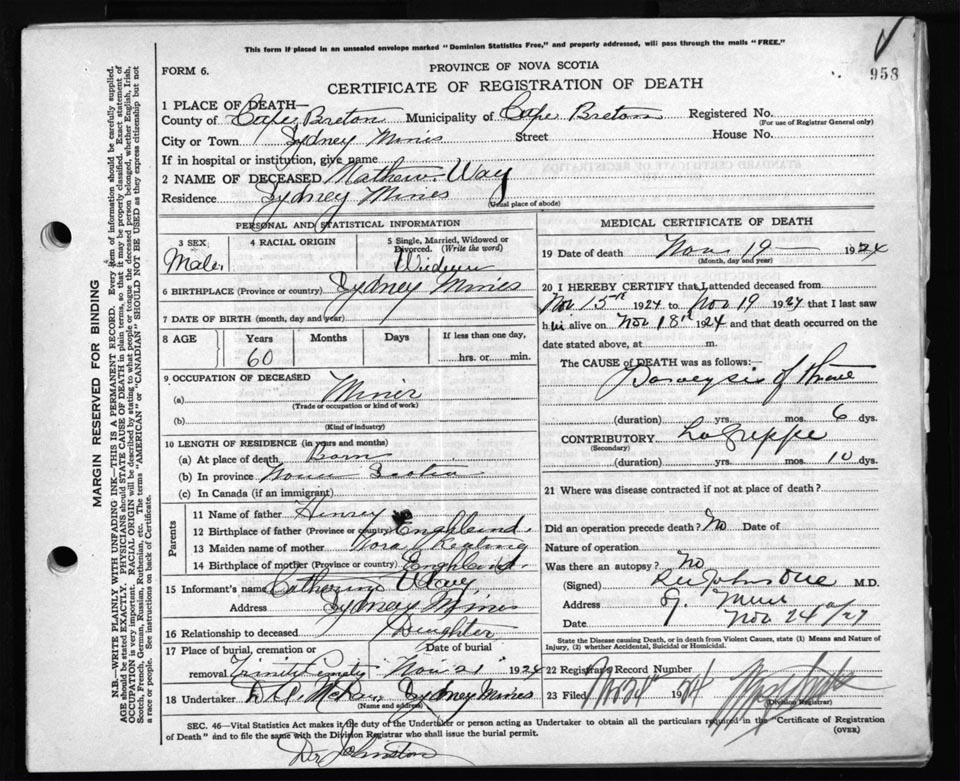 This form if placed in an unsealed envelope marked "Dominion Statistics Free," and properly addressed, will pass through the mails "FREE."
FORM 6.
PROVINCE OF NOVA SCOTIA
958
CERTIFICATE OF REGISTRATION OF DEATH
1 PLACE OF DEATH—
County of Cape Breton Municipality of Cape Breton Registered No.
(For use of Registrar General only)
City or Town Sydney Mines Street House No.
If in hospital or institution, give name
2 NAME OF DECEASED Mathew Way
Residence Sydney Mines
(Usual place of abode)
PERSONAL AND STATISTICAL INFORMATION
3 SEX 4 RACIAL ORIGIN 5 Single, Married, Widowed or Divorced. (Write the word)
Male
6 BIRTHPLACE (Province or country) Sydney Mines
7 DATE OF BIRTH (month, day and year)
8 AGE Years Months Days If less than one day,
60 hrs. or min.
9 OCCUPATION OF DECEASED
(a) Miner
(Trade or occupation or kind of work)
(b)
(Kind of industry)
10 LENGTH OF RESIDENCE (in years and months)
(a) At place of death Born
(b) In province Nova Scotia
(c) In Canada (if an immigrant)
Parents
11 Name of father Henry
12 Birthplace of father (Province or country) England
13 Maiden name of mother Nora Keating
14 Birthplace of mother (Province or country) England
15 Informant's name Catherine Way
Address Sydney Mines
16 Relationship to deceased Daughter
17 Place of burial, cremation or removal Date of burial
Trinity Nov 21 1924
18 Undertaker Sydney Mines
(Name and address)
MEDICAL CERTIFICATE OF DEATH
19 Date of death Nov 19 1924
(Month, day and year)
20 I HEREBY CERTIFY that I attended deceased from
Nov 15th 1924 to Nov 19 1924 that I last saw
h im alive on Nov 18th 1924 and that death occurred on
date stated above, at m.
The CAUSE of DEATH was as follows:—
of
(duration) yrs. mos. 6 dys.
CONTRIBUTORY La Grippe
(Secondary)
(duration) yrs. mos. 10 dys.
21 Where was disease contracted if not at place of death?
Did an operation precede death? No Date of
Nature of operation
Was there an autopsy? No
(Signed) Johnstone M.D.
Address S. Mines
Date Nov 24
State the Disease causing Death, or in death from Violent Causes, state (1) Means and Nature of Injury, (2) whether Accidental, Suicidal or Homicidal.
22 Registrar's Record Number
23 Filed
(Division Registrar)
SEC. 46—Vital Statistics Act makes it the duty of the Undertaker or person acting as Undertaker to obtain all the particulars required in the "Certificate of Registration
of Death" and to file the same with the Division Registrar who shall issue the burial permit.
(OVER)
Dr Johnston
MARGIN RESERVED FOR BINDING
N.B.—WRITE PLAINLY WITH UNFADING INK—THIS IS A PERMANENT RECORD. Every item of information should be carefully supplied.
AGE should be stated EXACTLY. PHYSICIANS should STATE CAUSE OF DEATH in plain terms, so that it may be properly classified. Exact statement of
OCCUPATION is very important. RACIAL ORIGIN will be described by stating to what people or tongue the deceased person belonged, whether English, Irish,
Scotch, French, German, Russian, Ruthenian, etc. The terms "AMERICAN" or "CANADIAN" SHOULD NOT BE USED as they express citizenship but not
a race or people. See instructions on back of Certificate.